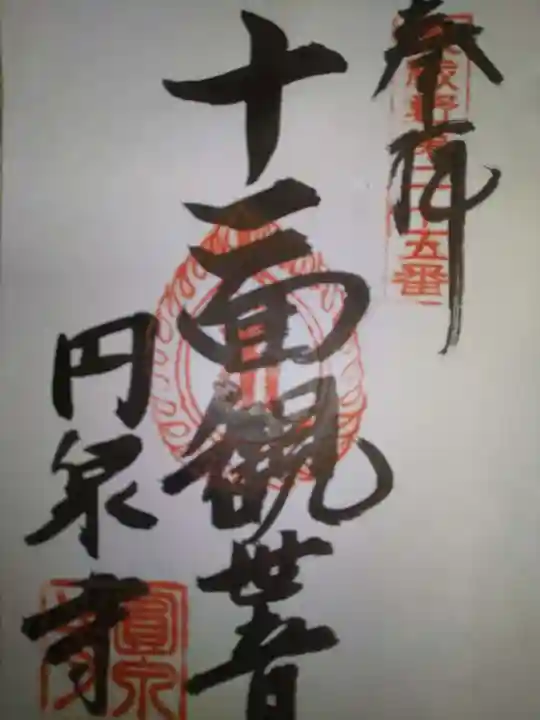 奉拝
武蔵野第二十五番
十一面観世音
円泉寺
圓泉寺